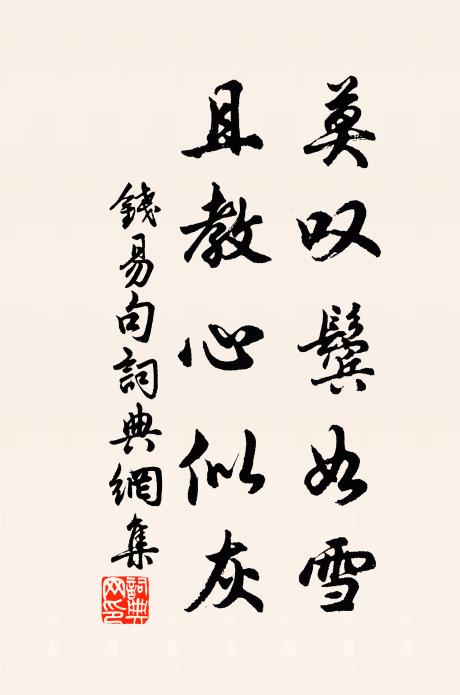 莫叹鬓如雪
且教心似灰
錢易句詞典網集
詞典
网印